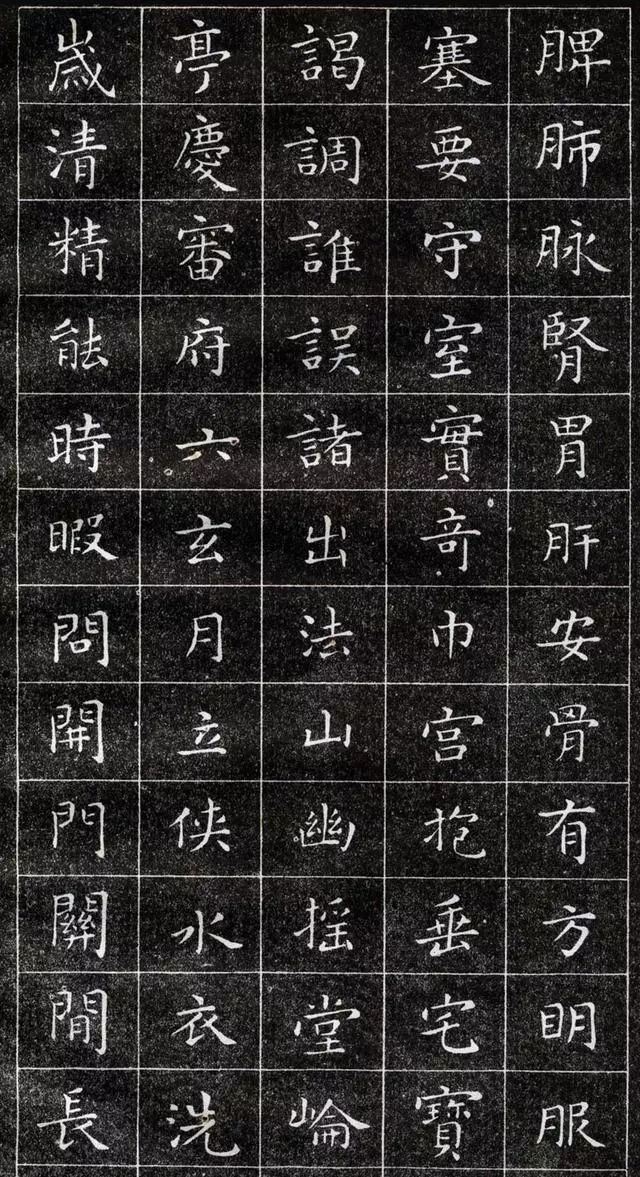 脾肺脉腎胃肝安骨有方明服
塞要守室實奇巾宫抱垂宅寶
謁調誰誤諸出法山幽摇堂崘
亭慶審府六玄月立侠水衣洗
嵗清精能時暇問開門關閒長